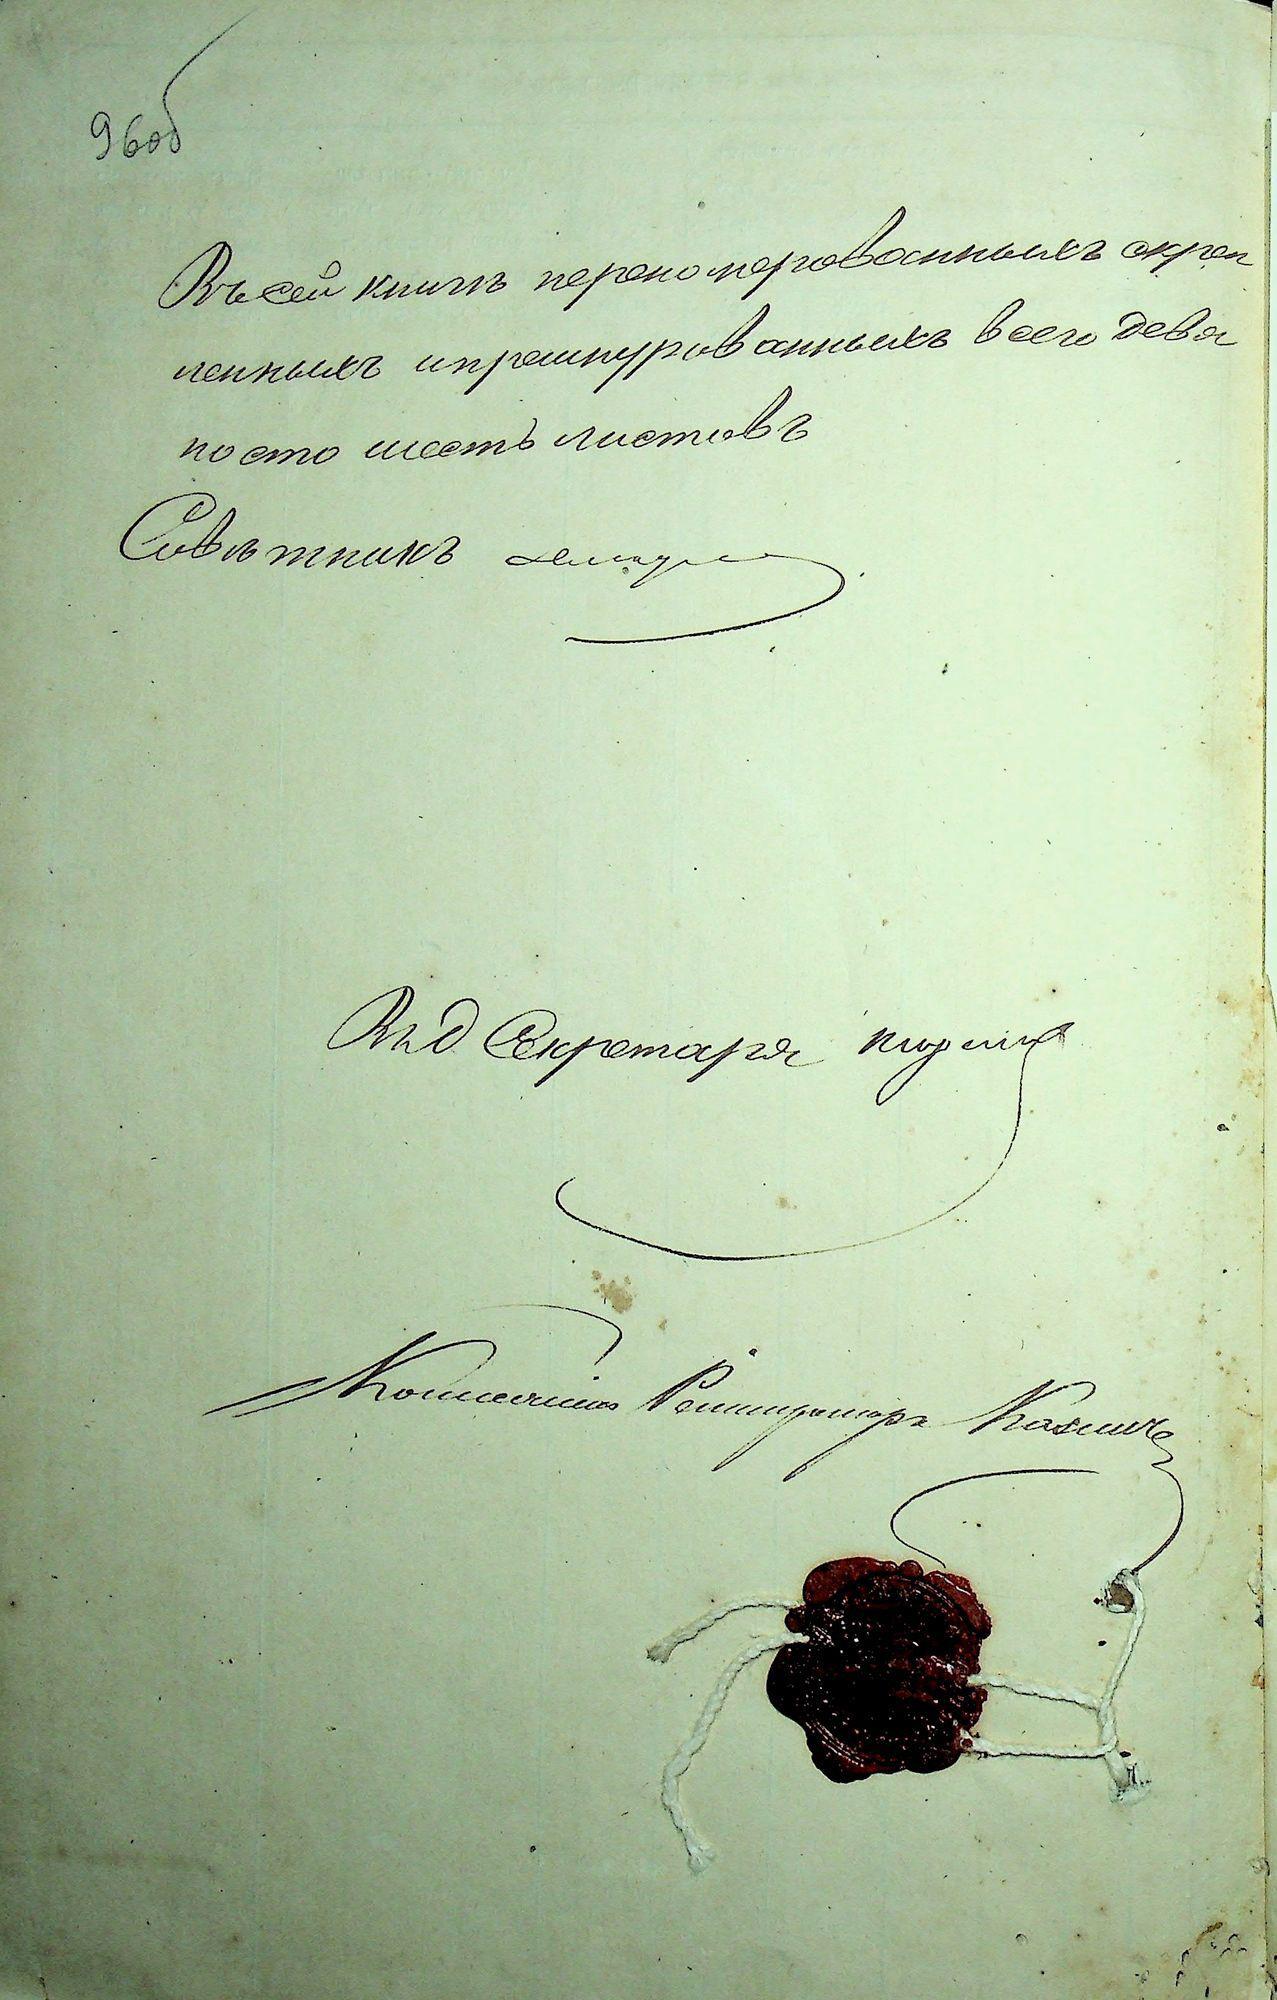 96об
Въ сей книгѣ переномерованныхъ скреп
ленныхъ и прошнурованныхъ всего девя
носто шесть листовъ
Совѣтникъ
Вѣд Секретаря
Коллежскій Регистраторъ